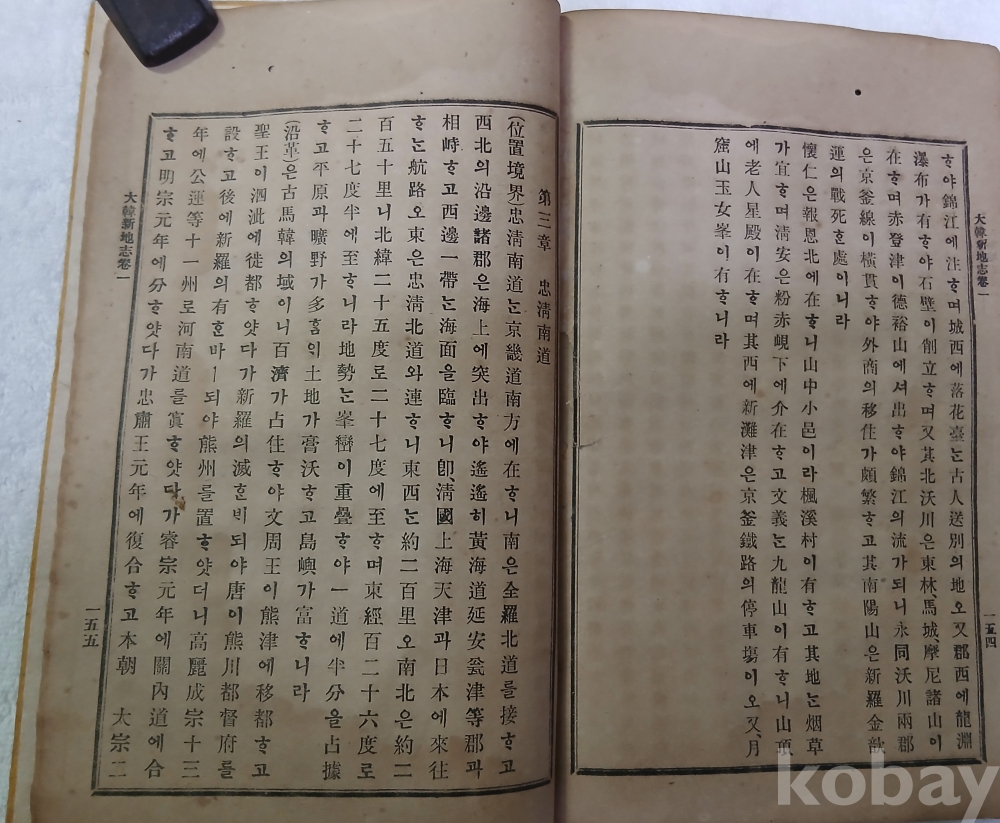 大韓新地志卷一
一五四
ᄒᆞ야錦江에注ᄒᆞ며城西에落花臺ᄂᆞᆫ古人送別의地오又郡西에龍淵
瀑布가有ᄒᆞ야石壁이削立ᄒᆞ며又其北沃川은東林、馬城、摩尼諸山이
在ᄒᆞ며赤登津이德裕山에셔出ᄒᆞ야錦江의流가되니永同沃川兩郡
은京釜線이橫貫ᄒᆞ야外商의移住가頗繁ᄒᆞ고其南陽山은新羅金歆
運의戰死ᄒᆞᆫ處이니라
懷仁은報恩北에在ᄒᆞ니山中小邑이라楓溪村이有ᄒᆞ고其地ᄂᆞᆫ烟草
가宜ᄒᆞ며淸安은粉赤峴下에介在ᄒᆞ고文義ᄂᆞᆫ九龍山이有ᄒᆞ니山頂
에老人星殿이在ᄒᆞ며其西에新灘津은京釜鐵路의停車塲이오又、月
窟山玉女峯이有ᄒᆞ니라
第三章 忠淸南道
(位置境界)忠淸南道ᄂᆞᆫ京畿道南方에在ᄒᆞ니南은全羅北道를接ᄒᆞ고
西北의沿邊諸郡은海上에突出ᄒᆞ야遙遙히黃海道延安瓮津等郡과
相峙ᄒᆞ고西邊一帶ᄂᆞᆫ海面을臨ᄒᆞ니卽、淸國上海天津과日本에來往
ᄒᆞᄂᆞᆫ航路오東은忠淸北道와連ᄒᆞ니東西ᄂᆞᆫ約二百里오南北은約二
百五十里니北緯二十五度로二十七度에至ᄒᆞ며東經百二十六度로
二十七度半에至ᄒᆞ니라地勢ᄂᆞᆫ峯巒이重疊ᄒᆞ야一道에半分을占據
ᄒᆞ고平原과曠野가多ᄒᆞᆷᄋᆡ土地가膏沃ᄒᆞ고島嶼가富ᄒᆞ니라
(沿革)은古馬韓의域이니百濟가占住ᄒᆞ야文周王이熊津에移都ᄒᆞ고
聖王이泗沘에徙都ᄒᆞ얏다가新羅의滅ᄒᆞᆫᄇᆡ되야唐이熊川都督府를
設ᄒᆞ고後에新羅의有ᄒᆞᆫ마ㅣ되야熊州를置ᄒᆞ얏더니高麗成宗十三
年에公運等十一州로河南道를寘ᄒᆞ얏다가睿宗元年에關內道에合
ᄒᆞ고明宗元年에分ᄒᆞ얏다가忠肅王元年에復合ᄒᆞ고本朝 大宗二
大韓新地志卷一
一五五
kobay